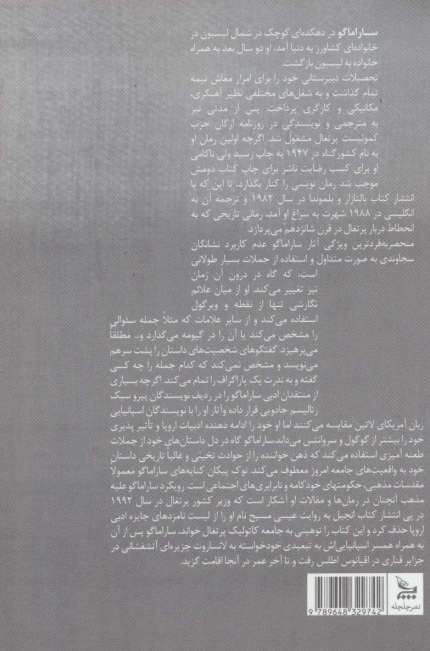 ساراماگو در دهکده‌ای کوچک در شمال لیسبون در
خانواده‌ای کشاورز به دنیا آمد، او دو سال بعد به همراه
خانواده به لیسبون بازگشت.
تحصیلات دبیرستانی خود را برای امرار معاش نیمه
تمام گذاشت و به شغل‌های مختلفی نظیر آهنگری،
مکانیکی و کارگری پرداخت پس از مدتی نیز
به مترجمی و نویسندگی در روزنامه ارگان حزب
کمونیست پرتغال مشغول شد. اگرچه اولین رمان او
به نام کشور گناه در ۱۹۴۷ به چاپ رسید ولی ناکامی
او برای کسب رضایت ناشر برای چاپ کتاب دومش
موجب شد رمان نویسی را کنار بگذارد، تا این که با
انتشار کتاب بالتازار و بلموندا در سال ۱۹۸۲ و ترجمه آن به
انگلیسی در ۱۹۸۸ شهرت به سراغ او آمد، رمانی تاریخی که به
انحطاط دربار پرتغال در قرن شانزدهم می‌پردازد.
منحصربه‌فردترین ویژگی آثار ساراماگو عدم کاربرد نشانگان
سجاوندی به صورت متداول و استفاده از جملات بسیار طولانی
است، که گاه در درون آن زمان
نیز تغییر می‌کند. او از میان علائم
نگارشی تنها از نقطه و ویرگول
استفاده می‌کند و از سایر علامات که مثلاً جمله سئوالی
را مشخص می‌کند یا آن را در گیومه می‌گذارد و.. مطلقاً
می‌پرهیزد. گفتگوهای شخصیت‌های داستان را پشت سرهم
می‌نویسد و مشخص نمی‌کند که کدام جمله را چه کسی
گفته و به ندرت یک پاراگراف را تمام می‌کند. اگرچه بسیاری
از منتقدان ادبی ساراماگو را در ردیف نویسندگان پیرو سبک
رئالیسم جادویی قرار داده وآثار او را با نویسندگان اسپانیایی
زبان آمریکای لاتین مقایسه می‌کنند اما او خود را ادامه دهنده ادبیات اروپا و تأثیر پذیری
خود را بیشتر از گوگول و سروانتس می‌داند،ساراماگو گاه در دل داستان‌های خود از جملات
طعنه آمیزی استفاده می‌کند که ذهن خواننده را از حوادث تخیلی و غالبا تاریخی داستان
خود به واقعیت‌های جامعه امروز معطوف می‌کند. نوک پیکان کنایه‌های ساراماگو معمولاً
مقدسات مذهبی، حکومتهای خودکامه و نابرابری‌های اجتماعی است. رویکرد ساراماگو علیه
مذهب آنچنان در رمان‌ها و مقالات او آشکار است که وزیر کشور پرتغال در سال ۱۹۹۲
در پی انتشار کتاب انجیل به روایت عیسی مسیح نام او را از لیست نامزدهای جایزه ادبی
اروپا حذف کرد و این کتاب را توهینی به جامعه کاتولیک پرتغال خواند. ساراماگو پس از آن
به همراه همسر اسپانیایی‌اش به تبعیدی خودخواسته به لانساروت جزیره‌ای آتشفشانی در
جزایر قناری در اقیانوس اطلس رفت و تا آخر عمر در آنجا اقامت گزید.
نشرچلچله
9 789648 329742